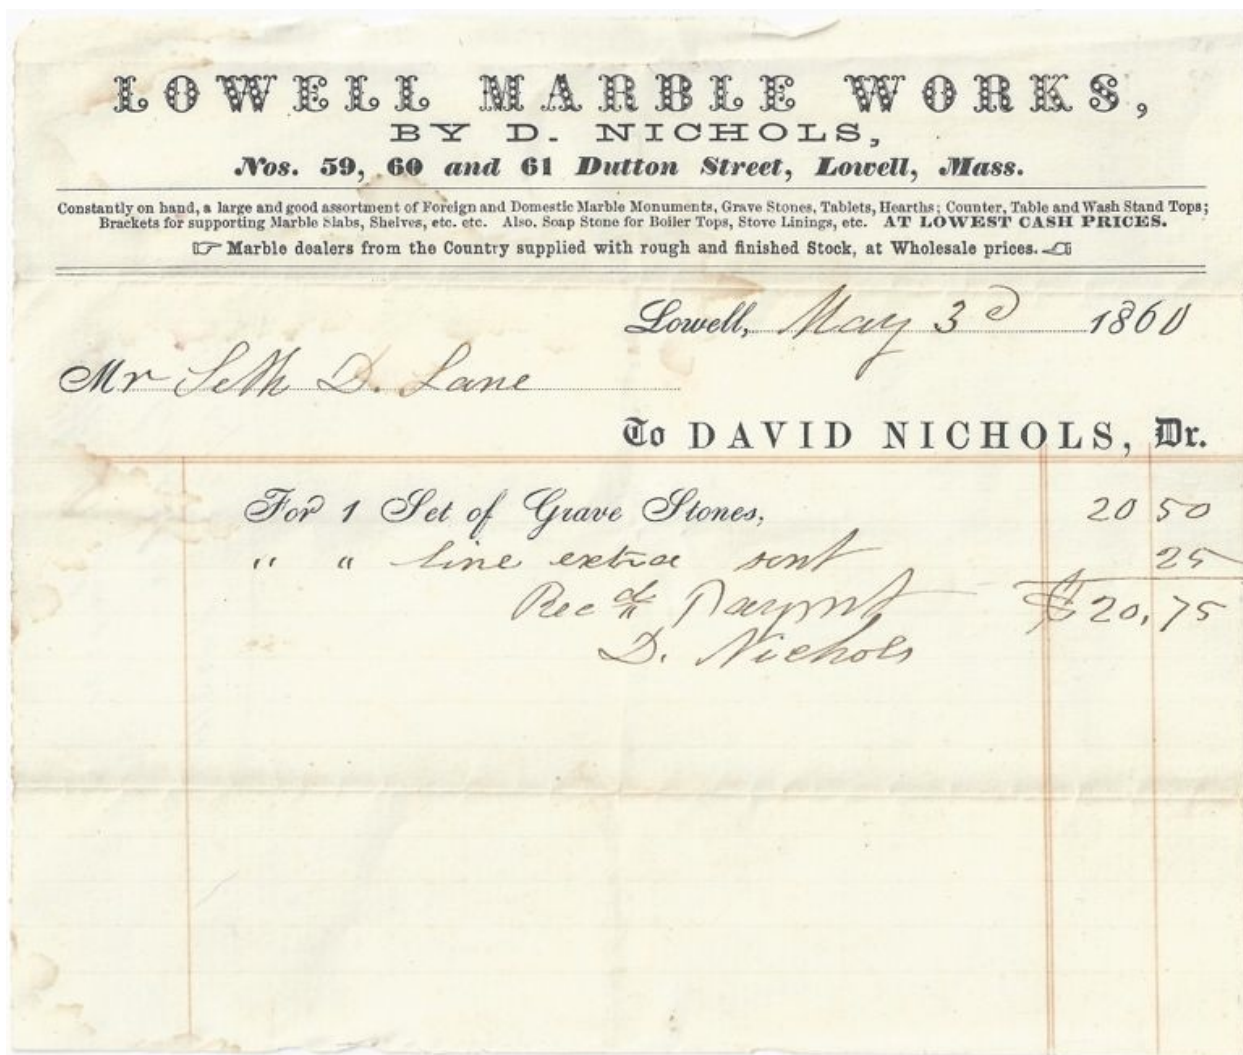 LOWELL MARBLE WORKS,
BY D. NICHOLS,
Nos. 59, 60 and 61 Dutton Street, Lowell, Mass.
Constantly on hand, a large and good assortment of Foreign and Domestic Marble Monuments, Grave Stones, Tablets, Hearths; Counter, Table and Wash Stand Tops;
Brackets for supporting Marble Slabs, Shelves, etc. etc. Also. Soap Stone for Boiler Tops, Stove Linings, etc. AT LOWEST CASH PRICES.
☞ Marble dealers from the Country supplied with rough and finished Stock, at Wholesale prices. ☜
Lowell, May 3d 1860
Mr Seth D. Lane
To DAVID NICHOLS, Dr.
For 1 Set of Grave Stones, 20 50
" " line extra 25
Recd Paymt $20,75
D. Nichols